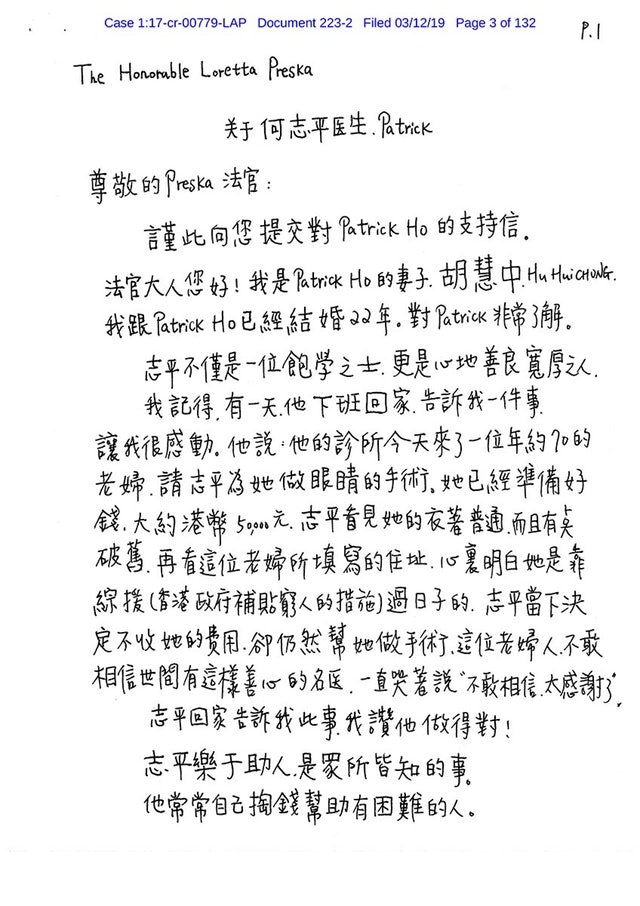 Case 1:17-cr-00779-LAP Document 223-2 Filed 03/12/19 Page 3 of 132
P.1
The Honorable Loretta Preska
关于何志平医生.Patrick
尊敬的Preska法官:
謹此向您提交對Patrick Ho的支持信。
法官大人您好!我是Patrick Ho的妻子.胡慧中.Hu HuiCHONG.
我跟Patrick Ho已經結婚22年。對Patrick非常了解。
志平不僅是一位飽學之士.更是心地善良寬厚之人.
我記得.有一天.他下班回家.告訴我一件事.
讓我很感動。他說:他的診所今天來了一位年約70的
老婦.請志平為她做眼睛的手術。她已經準備好
錢.大約港幣50,000元.志平看見她的衣著普通.而且有点
破舊.再看這位老婦所填寫的住址.心裏明白她是靠
綜援(香港政府補貼窮人的措施)過日子的.志平當下決
定不收她的費用.卻仍然幫她做手術.這位老婦人.不敢
相信世間有這樣善心的名医.一直哭著說"不敢相信.太感謝了".
志平回家告訴我此事.我讚他做得對!
志平樂于助人.是眾所皆知的事。
他常常自己掏錢幫助有困難的人。